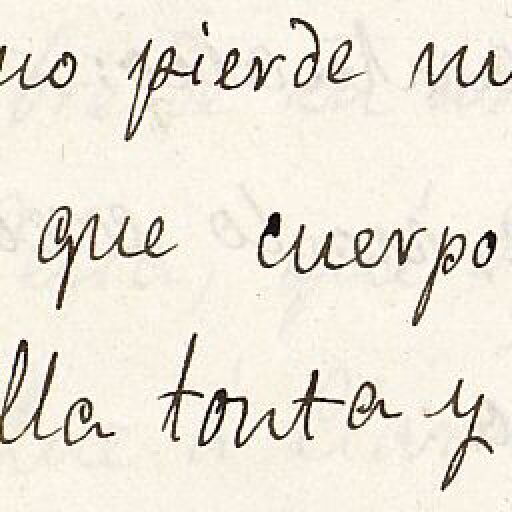 no pierde
que cuerpo
lla tonta y